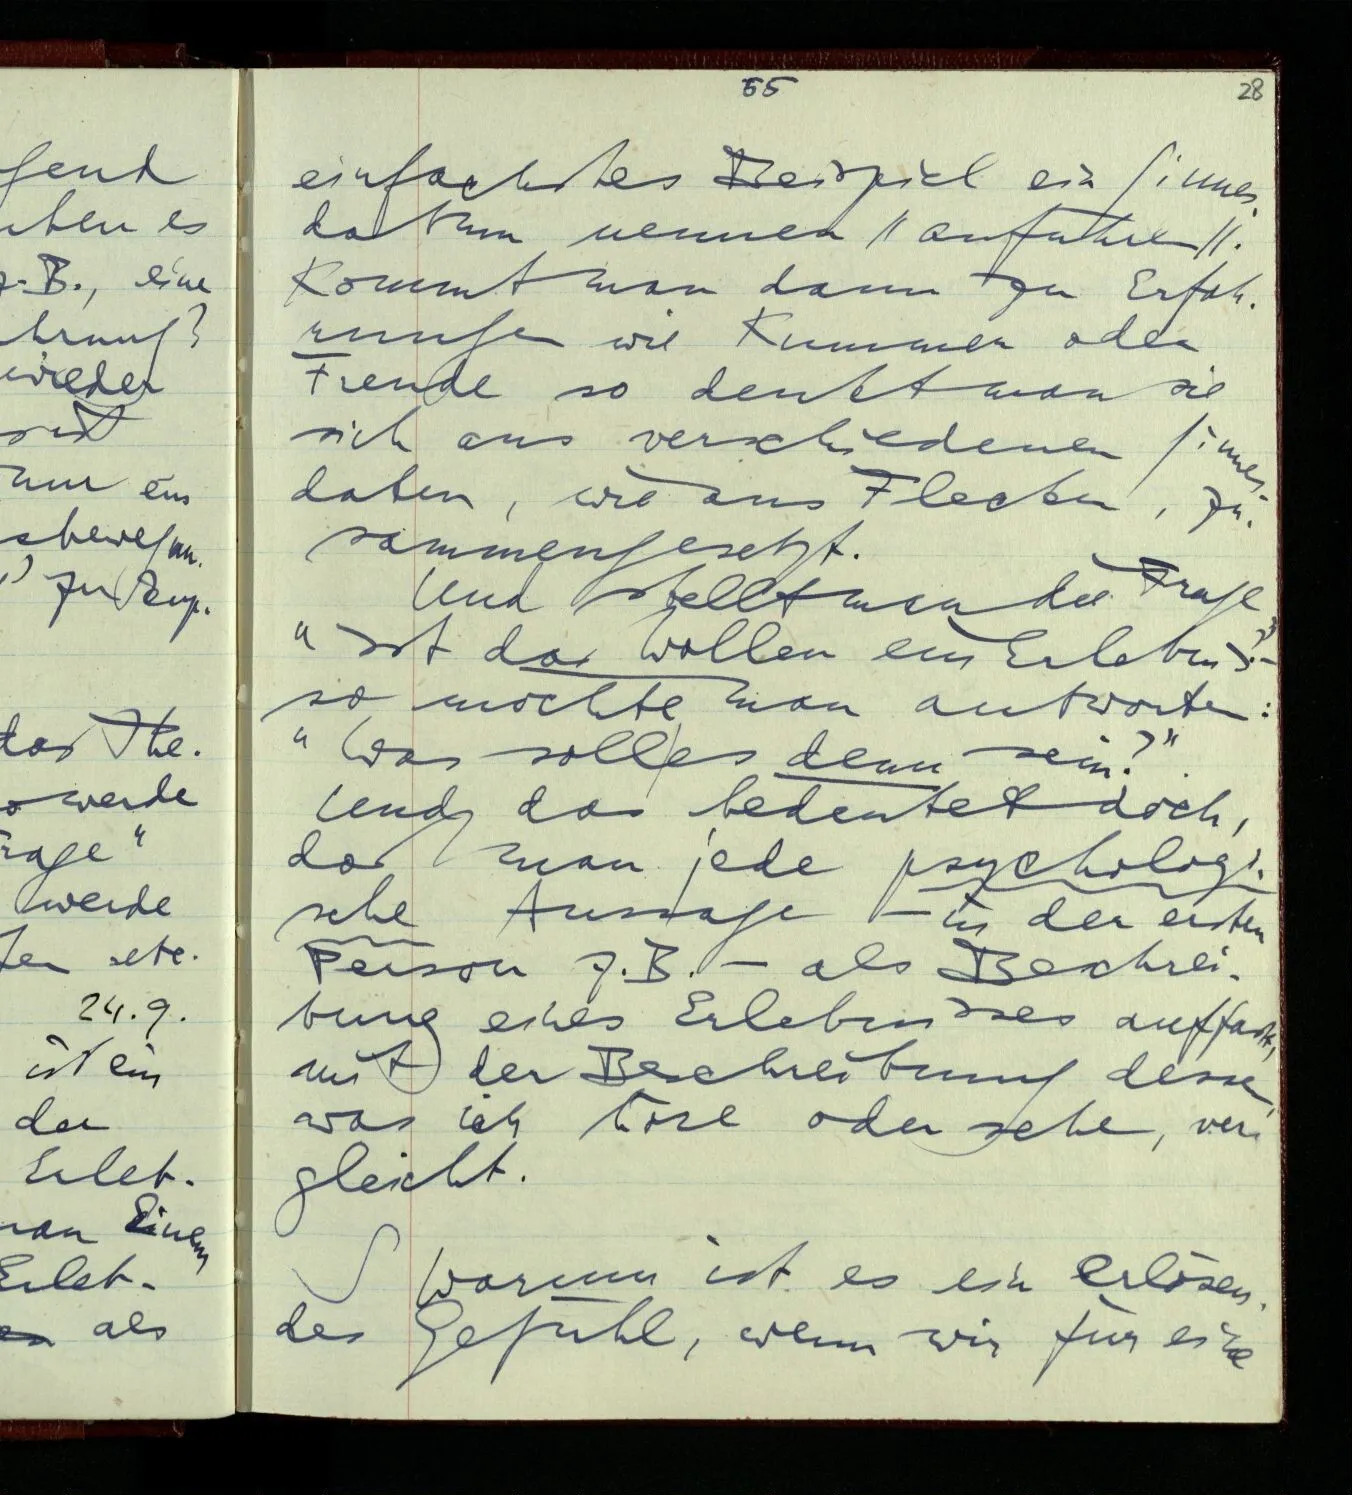 fend
ben es
z.B., eine
hrung?
wieder
nur ein
das The.
werde
rage"
werde
etc.
24.9.
ist ein
der
Erleb-
man Einem
Erleb-
als
55
28
einfachstes Beispiel ein Sinnes-
datum nennen // anführen //.
Kommt man dann zu Erfah-
rungen wie Kummer oder
Freude so denkt man sie
sich aus verschiedenen Sinnes-
daten, wie aus Flecken, zu-
sammengesetzt.
Und stellt man die Frage
"ist das Wollen ein Erlebnis?" –
so möchte man antworten:
"Was soll es denn sein?".
Und das bedeutet doch,
das man jede psychologi-
sche Aussage – in der ersten
Person z.B. – als Beschrei-
bung eines Erlebnisses auffaßt,
mit der Beschreibung dessen,
was ich höre oder sehe, ver-
gleicht.
S Warum ist es ein erlösen-
des Gefühl, wenn wir für eine